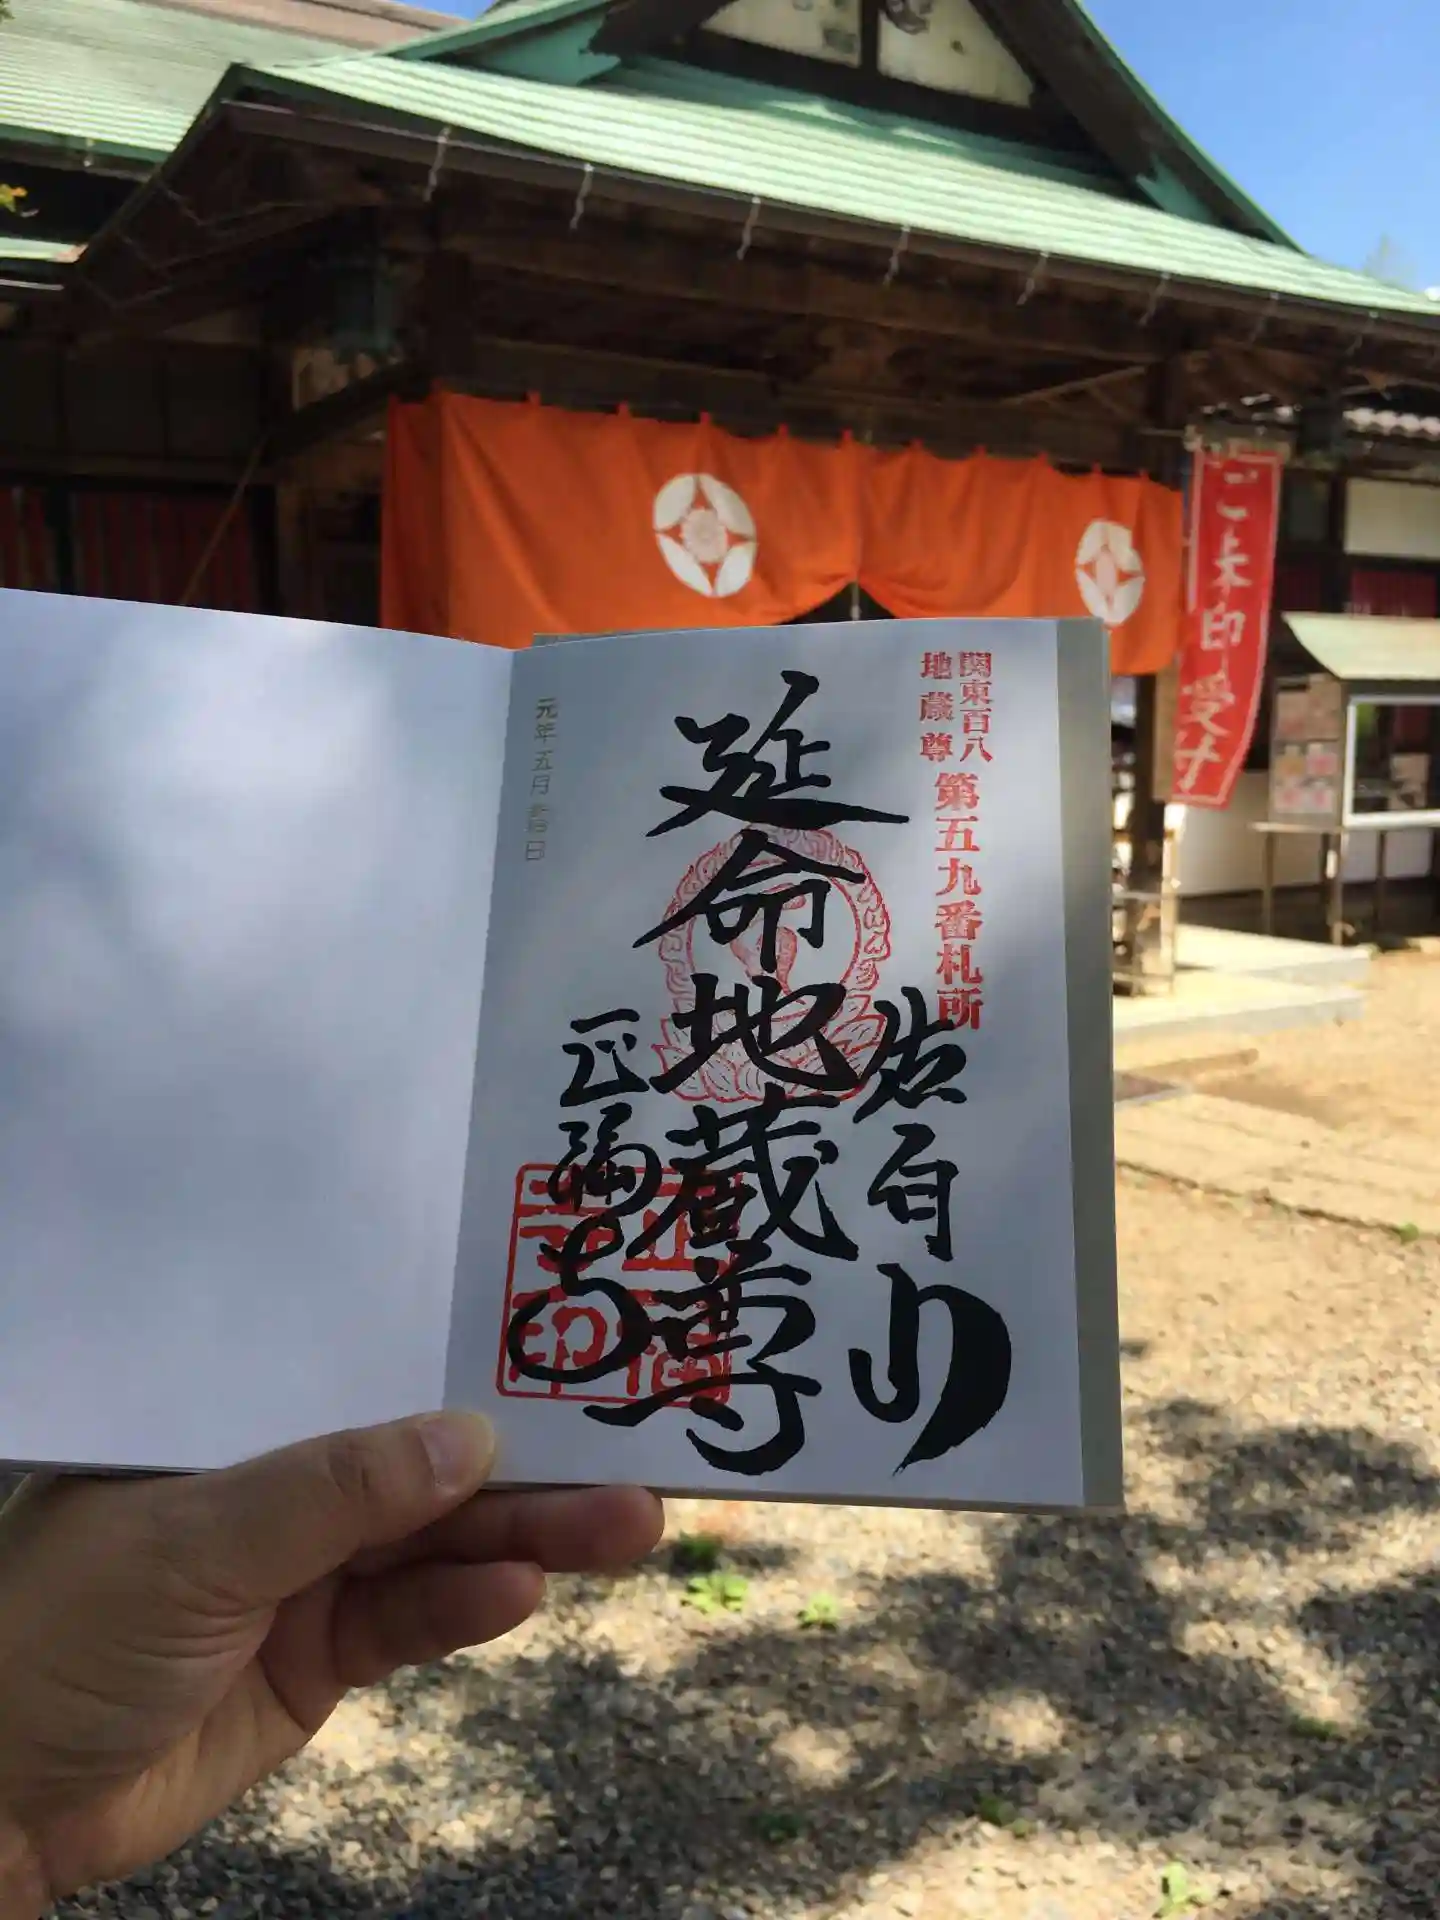 ご朱印受付
関東百八
地蔵尊
第五九番札所
佐白山
延命地蔵尊
正福寺
正福
寺印
元年五月拾日